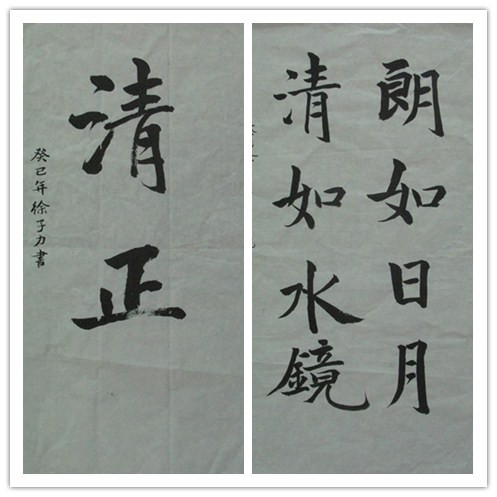 清正
癸巳年徐子力書
朗如日月
清如水鏡